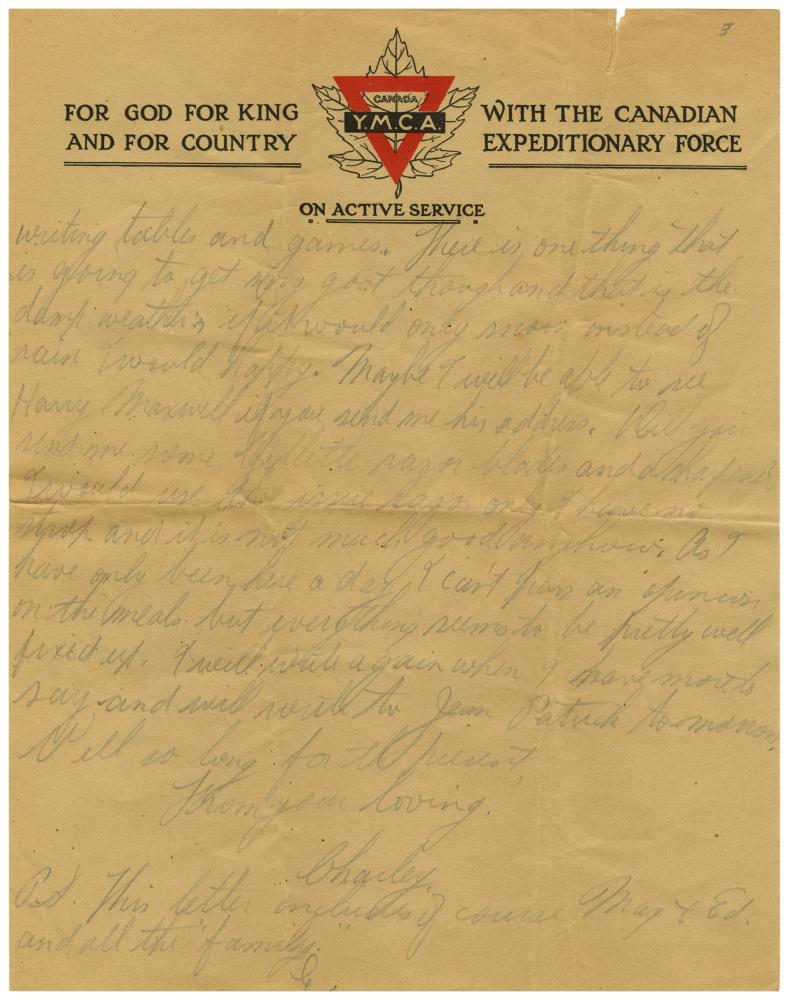 3
FOR GOD FOR KING
AND FOR COUNTRY
CANADA
Y.M.C.A.
WITH THE CANADIAN
EXPEDITIONARY FORCE
ON ACTIVE SERVICE
writing tables and games. There is one thing that
is going to get my goat though and that is the
damp weather if it would only snow instead of
rain I would happy. Maybe I will be able to see
Harry Maxwell if you send me his address. Will you
send me some Gillette razor blades and a sharpener
I would use the issue razor only I have no
strop and it is not much good anyhow. As I
have only been here a day I can't pass an opinion
on the meals but everything seems to be pretty well
fixed up. I will write again when I have more to
say and will write to Jean Patrick to-morrow.
Well so long for the present,
From your loving.
Charley.
P.S. This letter includes of course May & Ed.
and all the "family."
C.